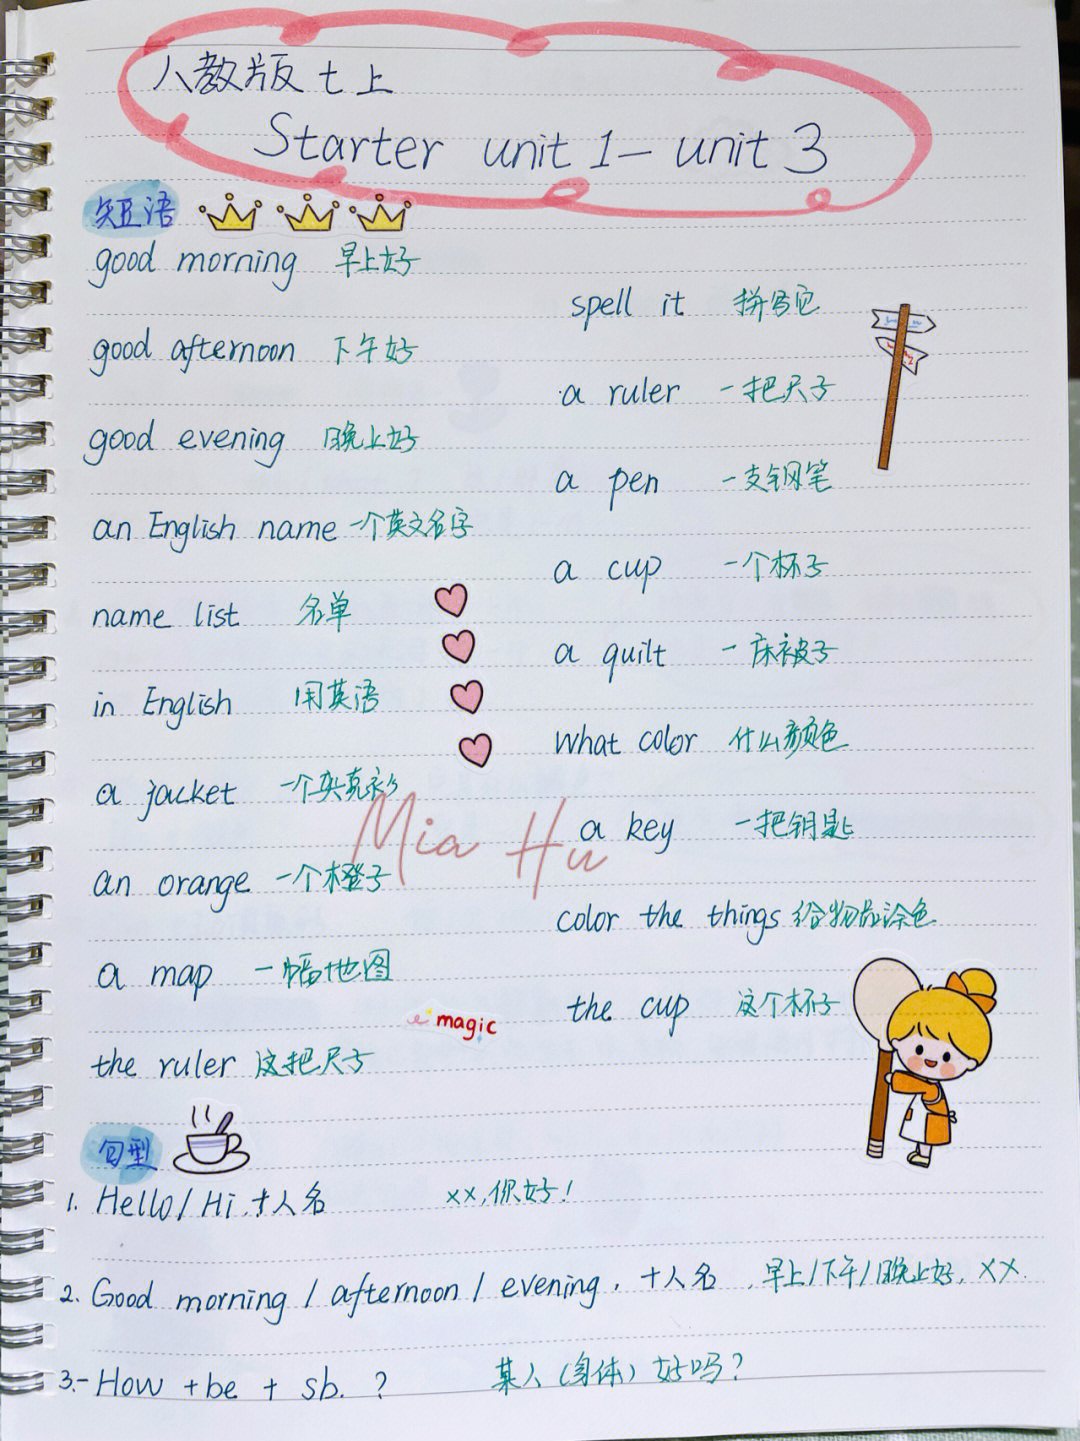 人教版七上
Starter unit 1 — unit 3
短语
good morning 早上好
good afternoon 下午好
good evening 晚上好
an English name 一个英文名字
name list 名单
in English 用英语
a jacket 一个夹克衫
an orange 一个橙子
a map 一幅地图
the ruler 这把尺子
spell it 拼写它
a ruler 一把尺子
a pen 一支钢笔
a cup 一个杯子
a quilt 一床被子
what color 什么颜色
a key 一把钥匙
color the things 给物品涂色
the cup 这个杯子
Mia Hu
magic
句型
1. Hello/Hi,+人名 xx,你好!
2. Good morning / afternoon / evening. +人名 .早上/下午/晚上好, xx.
3.- How +be + sb. ? 某人(身体)好吗?